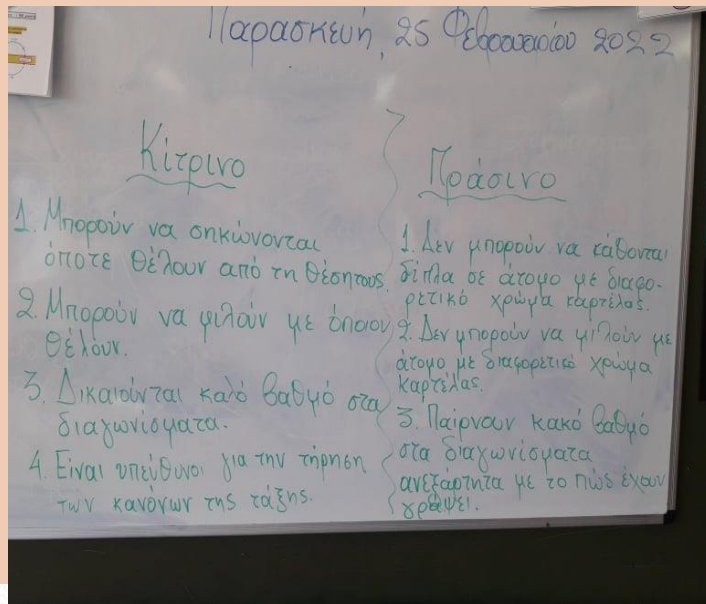 Παρασκευή, 25 Φεβρουαρίου 2022
Κίτρινο
1. Μπορούν να σηκώνονται
όποτε θέλουν από τη θέση τους.
2. Μπορούν να μιλούν με όποιον
θέλουν.
3. Δικαιούνται καλό βαθμό στα
διαγωνίσματα.
4. Είναι υπεύθυνοι για την τήρηση
των κανόνων της τάξης.
Πράσινο
1. Δεν μπορούν να κάθονται
δίπλα σε άτομο με διαφο-
ρετικό χρώμα καρτέλας.
2. Δεν μπορούν να μιλούν με
άτομο με διαφορετικό χρώμα
καρτέλας.
3. Παίρνουν κακό βαθμό
στα διαγωνίσματα
ανεξάρτητα με το πώς έχουν
γράψει.